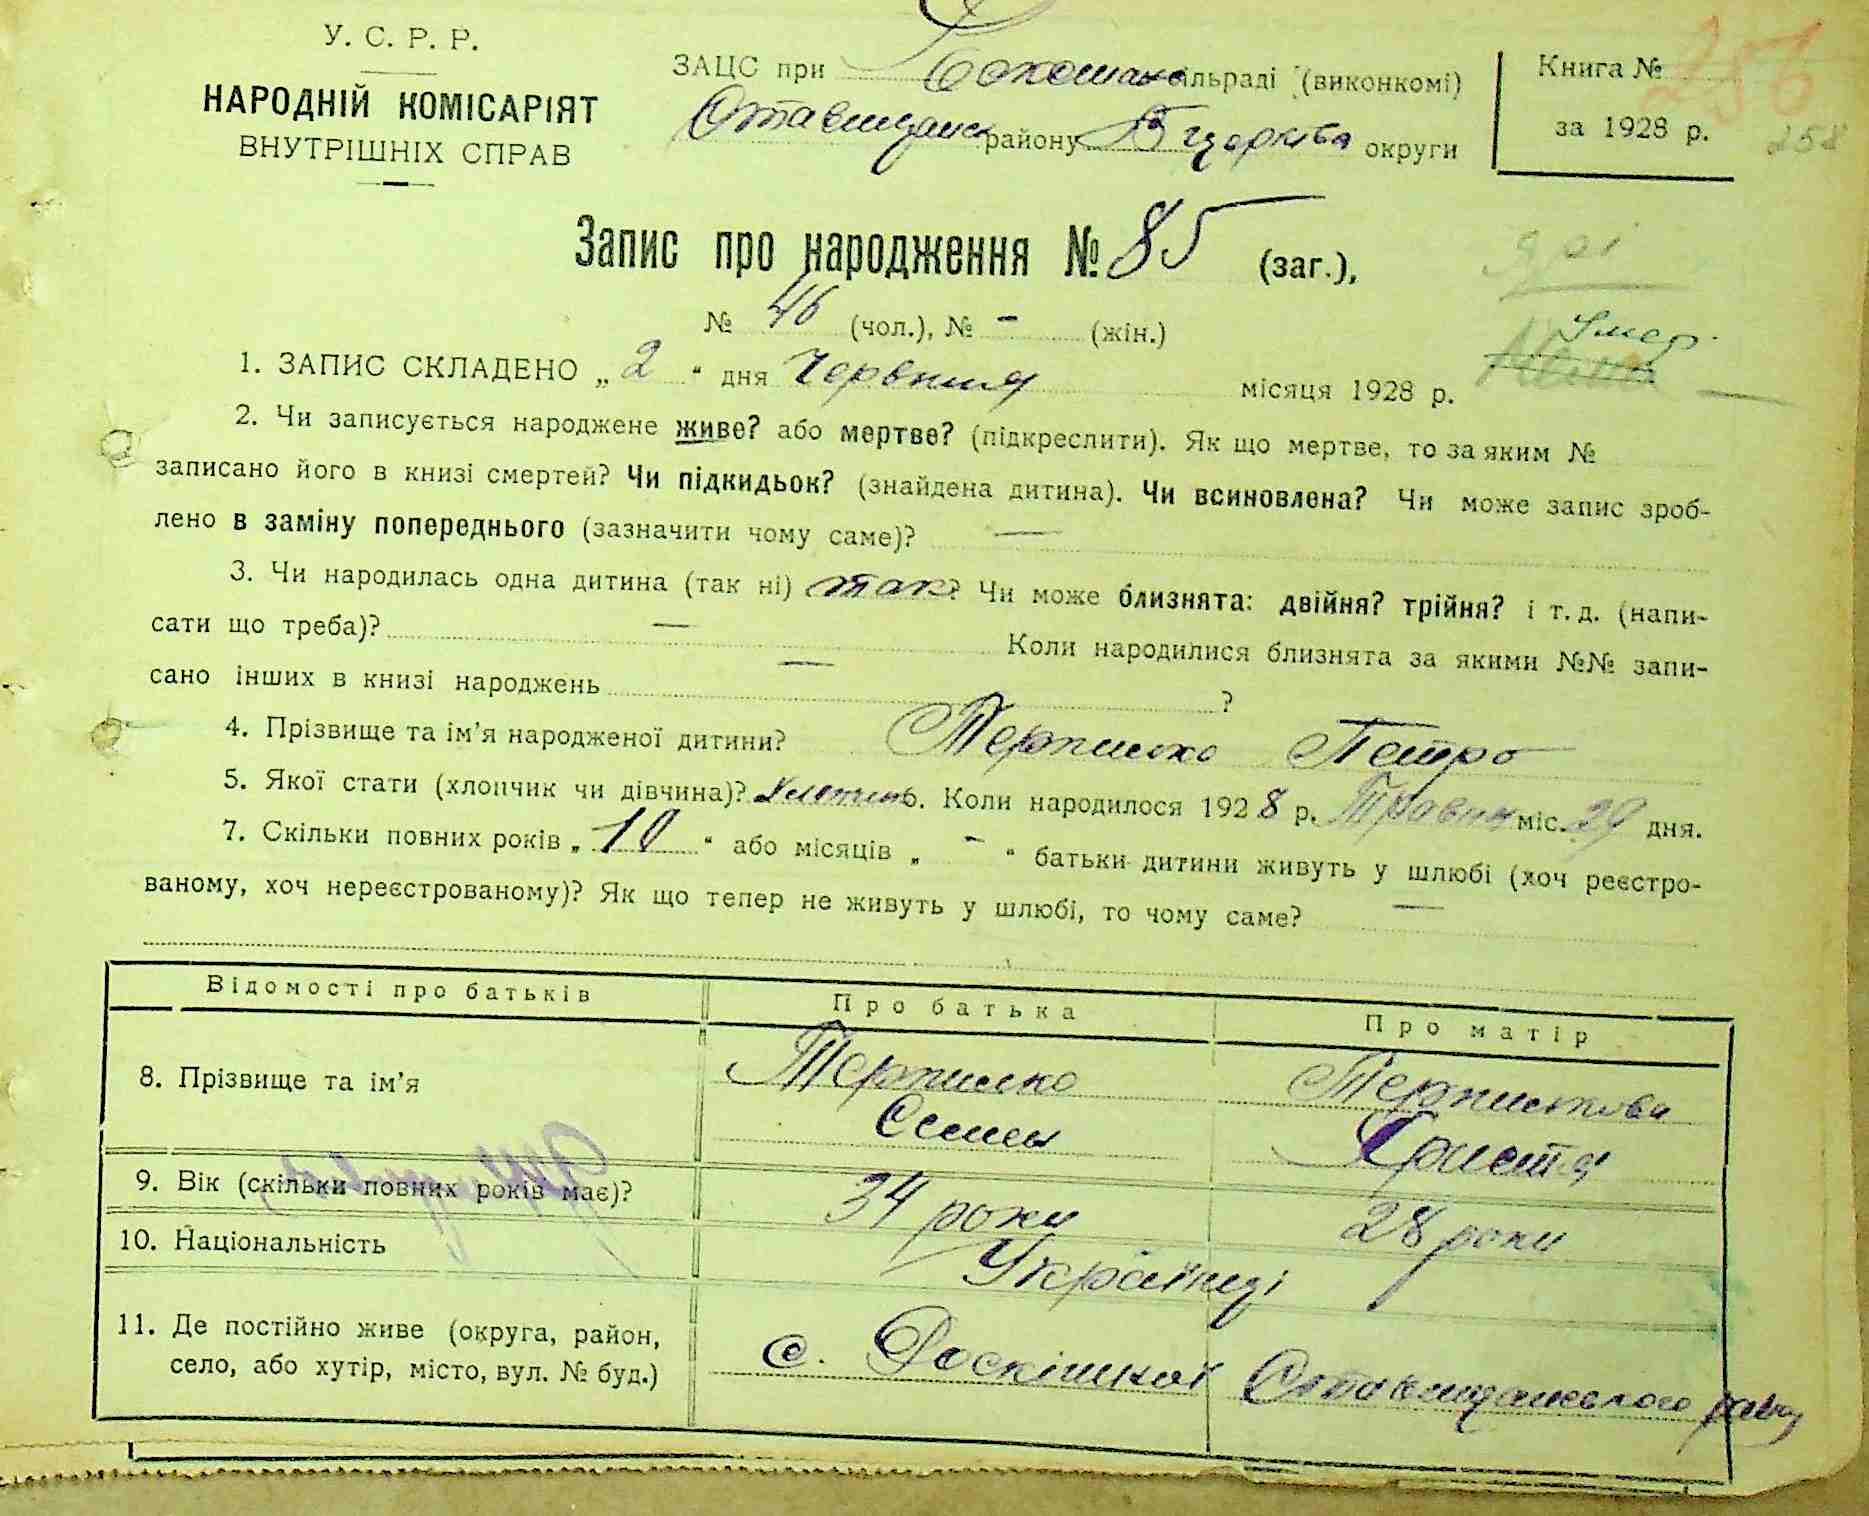 У. С. Р. Р.
НАРОДНІЙ КОМІСАРІЯТ
ВНУТРІШНІХ СПРАВ
ЗАЦС при сільраді (виконкомі)
Ставищанськ району Б Церква округи
Книга № 256
за 1928 р. 258
Запис про народження № 85 (заг.),
№ 46 (чол.), № – (жін.)
1. ЗАПИС СКЛАДЕНО „ 2 “ дня Червння місяця 1928 р.
2. Чи записується народжене живе? або мертве? (підкреслити). Як що мертве, то за яким №
записано його в книзі смертей? Чи підкидьок? (знайдена дитина). Чи всиновлена? Чи може запис зроб-
лено в заміну попереднього (зазначити чому саме)? —
3. Чи народилась одна дитина (так ні) так? Чи може близнята: двійня? трійня? і т. д. (напи-
сати що треба)? — Коли народилися близнята за якими №№ запи-
сано інших в книзі народжень — ?
4. Прізвище та ім’я народженої дитини? Терпилко Петро
5. Якої стати (хлопчик чи дівчина)? 6. Коли народилось 1928 р. Травня міс. 29 дня.
7. Скільки повних років „ 10 “ або місяців „ – “ батьки дитини живуть у шлюбі (хоч реєстро-
ваному, хоч нереєстрованому)? Як що тепер не живуть у шлюбі, то чому саме? —
Відомості про батьків Про батька Про матір
8. Прізвище та ім’я Терпилко Терпилкова
Семен Христя
9. Вік (скільки повних років має)? 34 роки 28 роки
10. Національність Українці
11. Де постійно живе (округа, район,
село, або хутір, місто, вул. № буд.) с. Роскішної Ставищанського району